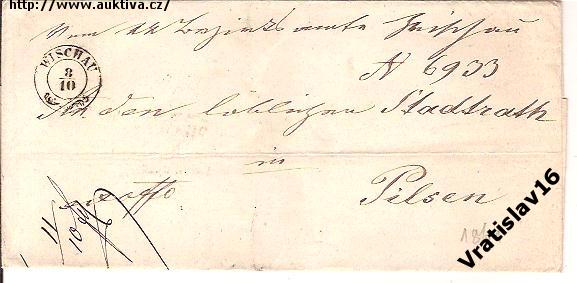 http://www.auktiva.cz/
Vom kk Bezirksamte Wischau
WISCHAU
8
10
N 6933
An den löblichen Stadtrath
in
Pilsen
11
10
Vratislav16